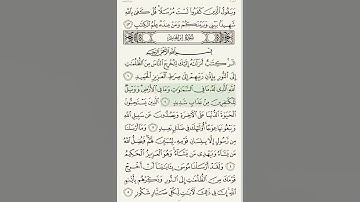 وَيَقُولُ الَّذِينَ كَفَرُوا لَسْتَ مُرْسَلًا قُلْ كَفَىٰ بِاللَّهِ
شَهِيدًا بَيْنِي وَبَيْنَكُمْ وَمَنْ عِندَهُ عِلْمُ الْكِتَابِ ٤٣
سُورَةُ إِبْرَاهِيمَ
بِسْمِ اللَّهِ الرَّحْمَٰنِ الرَّحِيمِ
الر كِتَابٌ أَنزَلْنَاهُ إِلَيْكَ لِتُخْرِجَ النَّاسَ مِنَ الظُّلُمَاتِ
إِلَى النُّورِ بِإِذْنِ رَبِّهِمْ إِلَىٰ صِرَاطِ الْعَزِيزِ الْحَمِيدِ ١
اللَّهِ الَّذِي لَهُ مَا فِي السَّمَاوَاتِ وَمَا فِي الْأَرْضِ وَوَيْلٌ
لِّلْكَافِرِينَ مِنْ عَذَابٍ شَدِيدٍ ٢ الَّذِينَ يَسْتَحِبُّونَ
الْحَيَاةَ الدُّنْيَا عَلَى الْآخِرَةِ وَيَصُدُّونَ عَن سَبِيلِ اللَّهِ
وَيَبْغُونَهَا عِوَجًا أُولَٰئِكَ فِي ضَلَالٍ بَعِيدٍ ٣ وَمَا أَرْسَلْنَا
مِن رَّسُولٍ إِلَّا بِلِسَانِ قَوْمِهِ لِيُبَيِّنَ لَهُمْ فَيُضِلُّ اللَّهُ
مَن يَشَاءُ وَيَهْدِي مَن يَشَاءُ وَهُوَ الْعَزِيزُ الْحَكِيمُ
٤ وَلَقَدْ أَرْسَلْنَا مُوسَىٰ بِآيَاتِنَا أَنْ أَخْرِجْ
قَوْمَكَ مِنَ الظُّلُمَاتِ إِلَى النُّورِ وَذَكِّرْهُم بِأَيَّامِ
اللَّهِ إِنَّ فِي ذَٰلِكَ لَآيَاتٍ لِّكُلِّ صَبَّارٍ شَكُورٍ ٥